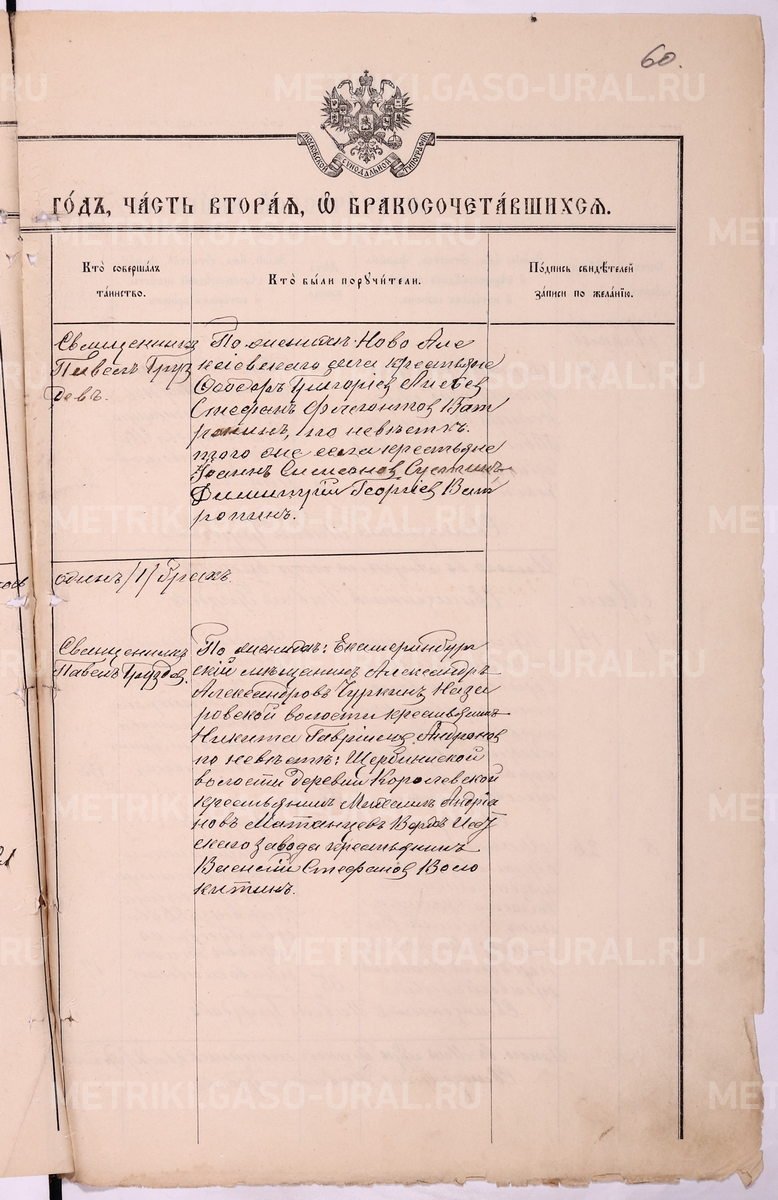 60.
МОСКОВСКОЙ СѴНОДАЛЬНОЙ ТИПОГРАФІИ
ГО́ДЪ, ЧА́СТЬ ВТОРА́Я, Ѡ БРАКОСОЧЕТА́ВШИХСЯ.
Кто̀ соверша́лъ
та́инство.
Кто̀ бы́ли порꙋчи́тели.
По́дпись свидѣ́телей
за́писи по жела́нію.
Священникъ
Павелъ Груз
девъ.
По женихѣ: Ново Але
ксіевскаго села крестьяне
Ѳеодоръ Григоріев
Стефанъ Ват
ропинъ, по невѣстѣ:
того же села крестьяне
Іоаннъ Симеонов Сустинъ
Димитрій Георгіев Ват
ропинъ.
одинъ /1/ бракъ.
Священникъ
Павелъ Груздев
По женихѣ: Екатеринбург
скій мѣщанинъ Александръ
Александровъ Чуркинъ Наза
ровской волости крестьянинъ
Никита Гавріилов Андронов
по невѣстѣ: Щербининской
волости деревни Королевской
крестьянинъ Михаилъ Андріа
новъ Матанцевъ Верхъ Исет
скаго завода крестьянинъ
Василій Стефанов Воло
китинъ.
METRIKI.GASO-URAL.RU